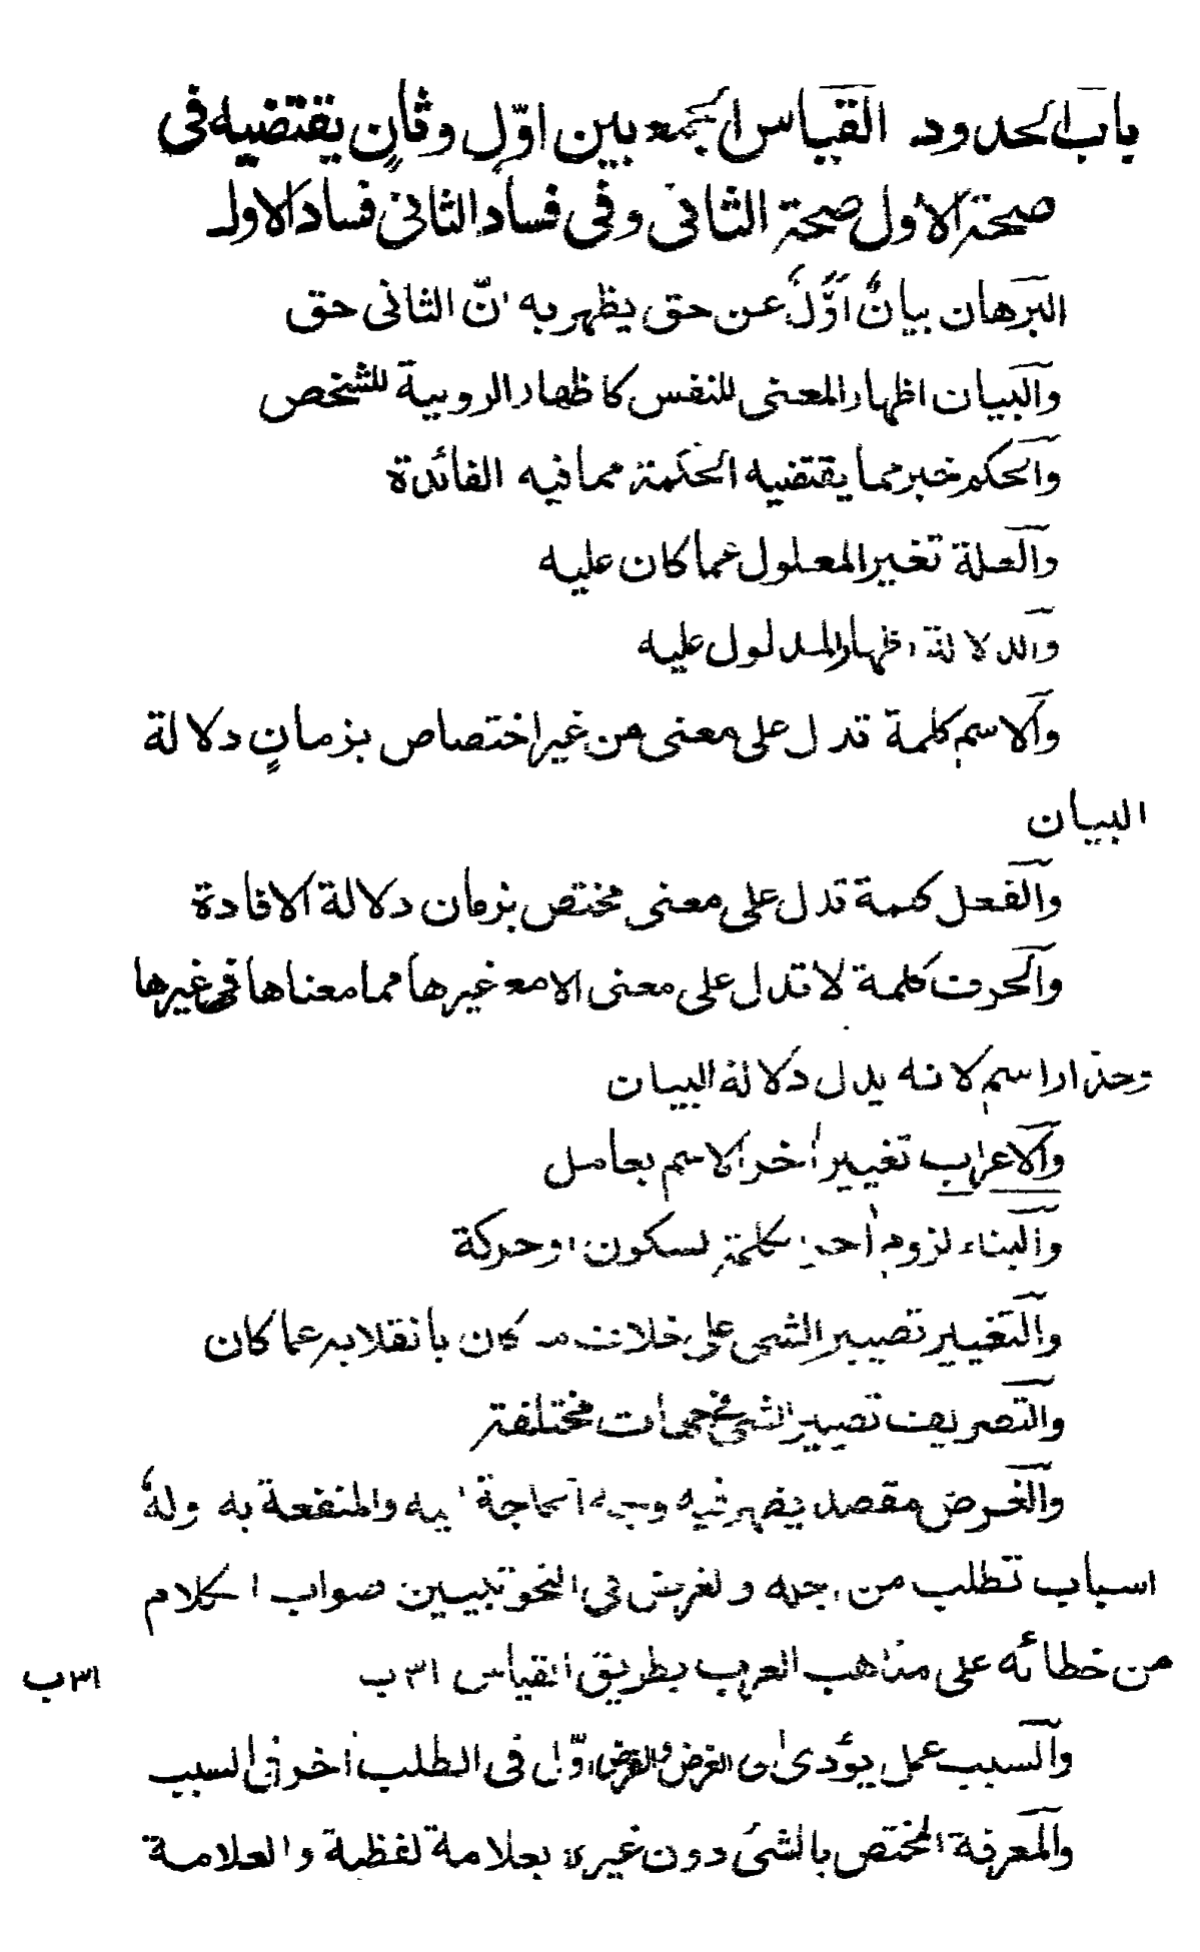 باب الحدود القياس الجمع بين اوّلٍ وثانٍ يقتضيه فى
صحة الاول صحة الثانى وفى فساد الثانى فساد الاول
البرهان بيانٌ اَوَّلٌ عن حق يظهر به انّ الثانى حق
والبيان اظهار المعنى للنفس كاظهار الروية للشخص
والحكم خبر مما يقتضيه الحكمة مما فيه الفائدة
والعلة تغير المعلول عما كان عليه
والدلالة اظهار المدلول عليه
والاسم كلمة تدل على معنى من غير اختصاص بزمانٍ دلالة
البيان
والفعل كلمة تدل على معنى مختص بزمان دلالة الافادة
والحرف كلمة لا تدل على معنى الا مع غيرها مما معناها فى غيرها
اسم لانه يدل دلالة البيان
والاعراب تغيير اٰخر الاسم بعامل
والبناء لزوم اٰخر الكلمة لسكون او حركة
والتغيير تصيير الشى على خلاف ما كان بانقلابه عما كان
والتصريف تصيير الشئ فى جهات مختلفة
والغرض مقصد يظهر فيه وجه الحاجة اليه والمنفعة به ولهُ
اسباب تطلب من اجله والغرض فى النحو تبيين صواب الكلام
من خطائه على مذاهب العرب بطريق القياس ٣١ب ٣١ب
والسبب عمل يؤدى الى الغرض والغرض اوّل فى الطلب اٰخر فى السبب
والمعرفة المختص بالشئ دون غيره بعلامة لفظية والعلامة